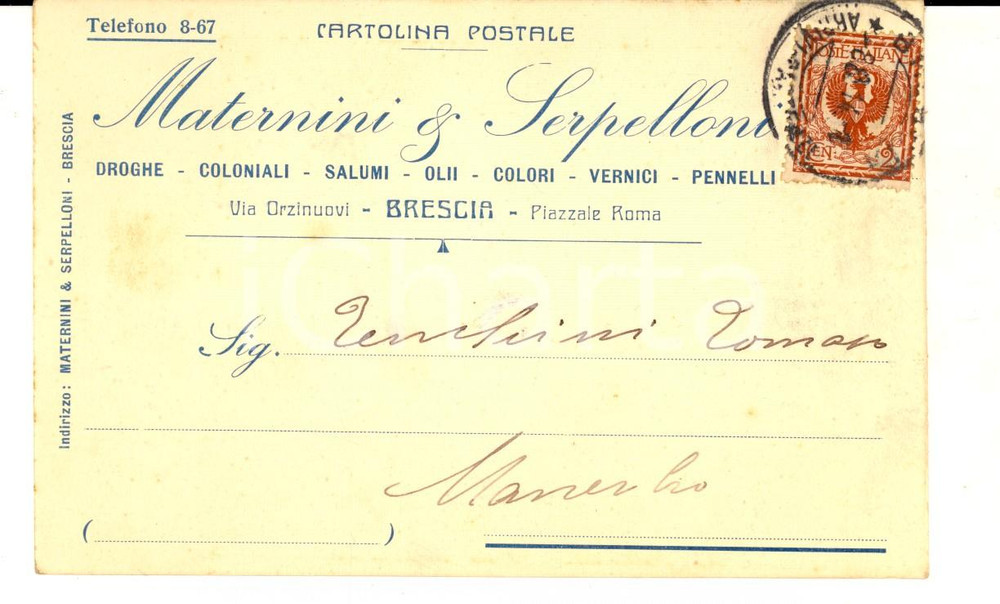 Telefono 8-67
CARTOLINA POSTALE
Maternini & Serpelloni
DROGHE - COLONIALI - SALUMI - OLII - COLORI - VERNICI - PENNELLI
Via Orzinuovi - BRESCIA - Piazzale Roma
Indirizzo: MATERNINI & SERPELLONI - BRESCIA
Sig. Tenchini Tomaso
Manerbio
( )
POSTE ITALIANE
CEN. 2
iCharta